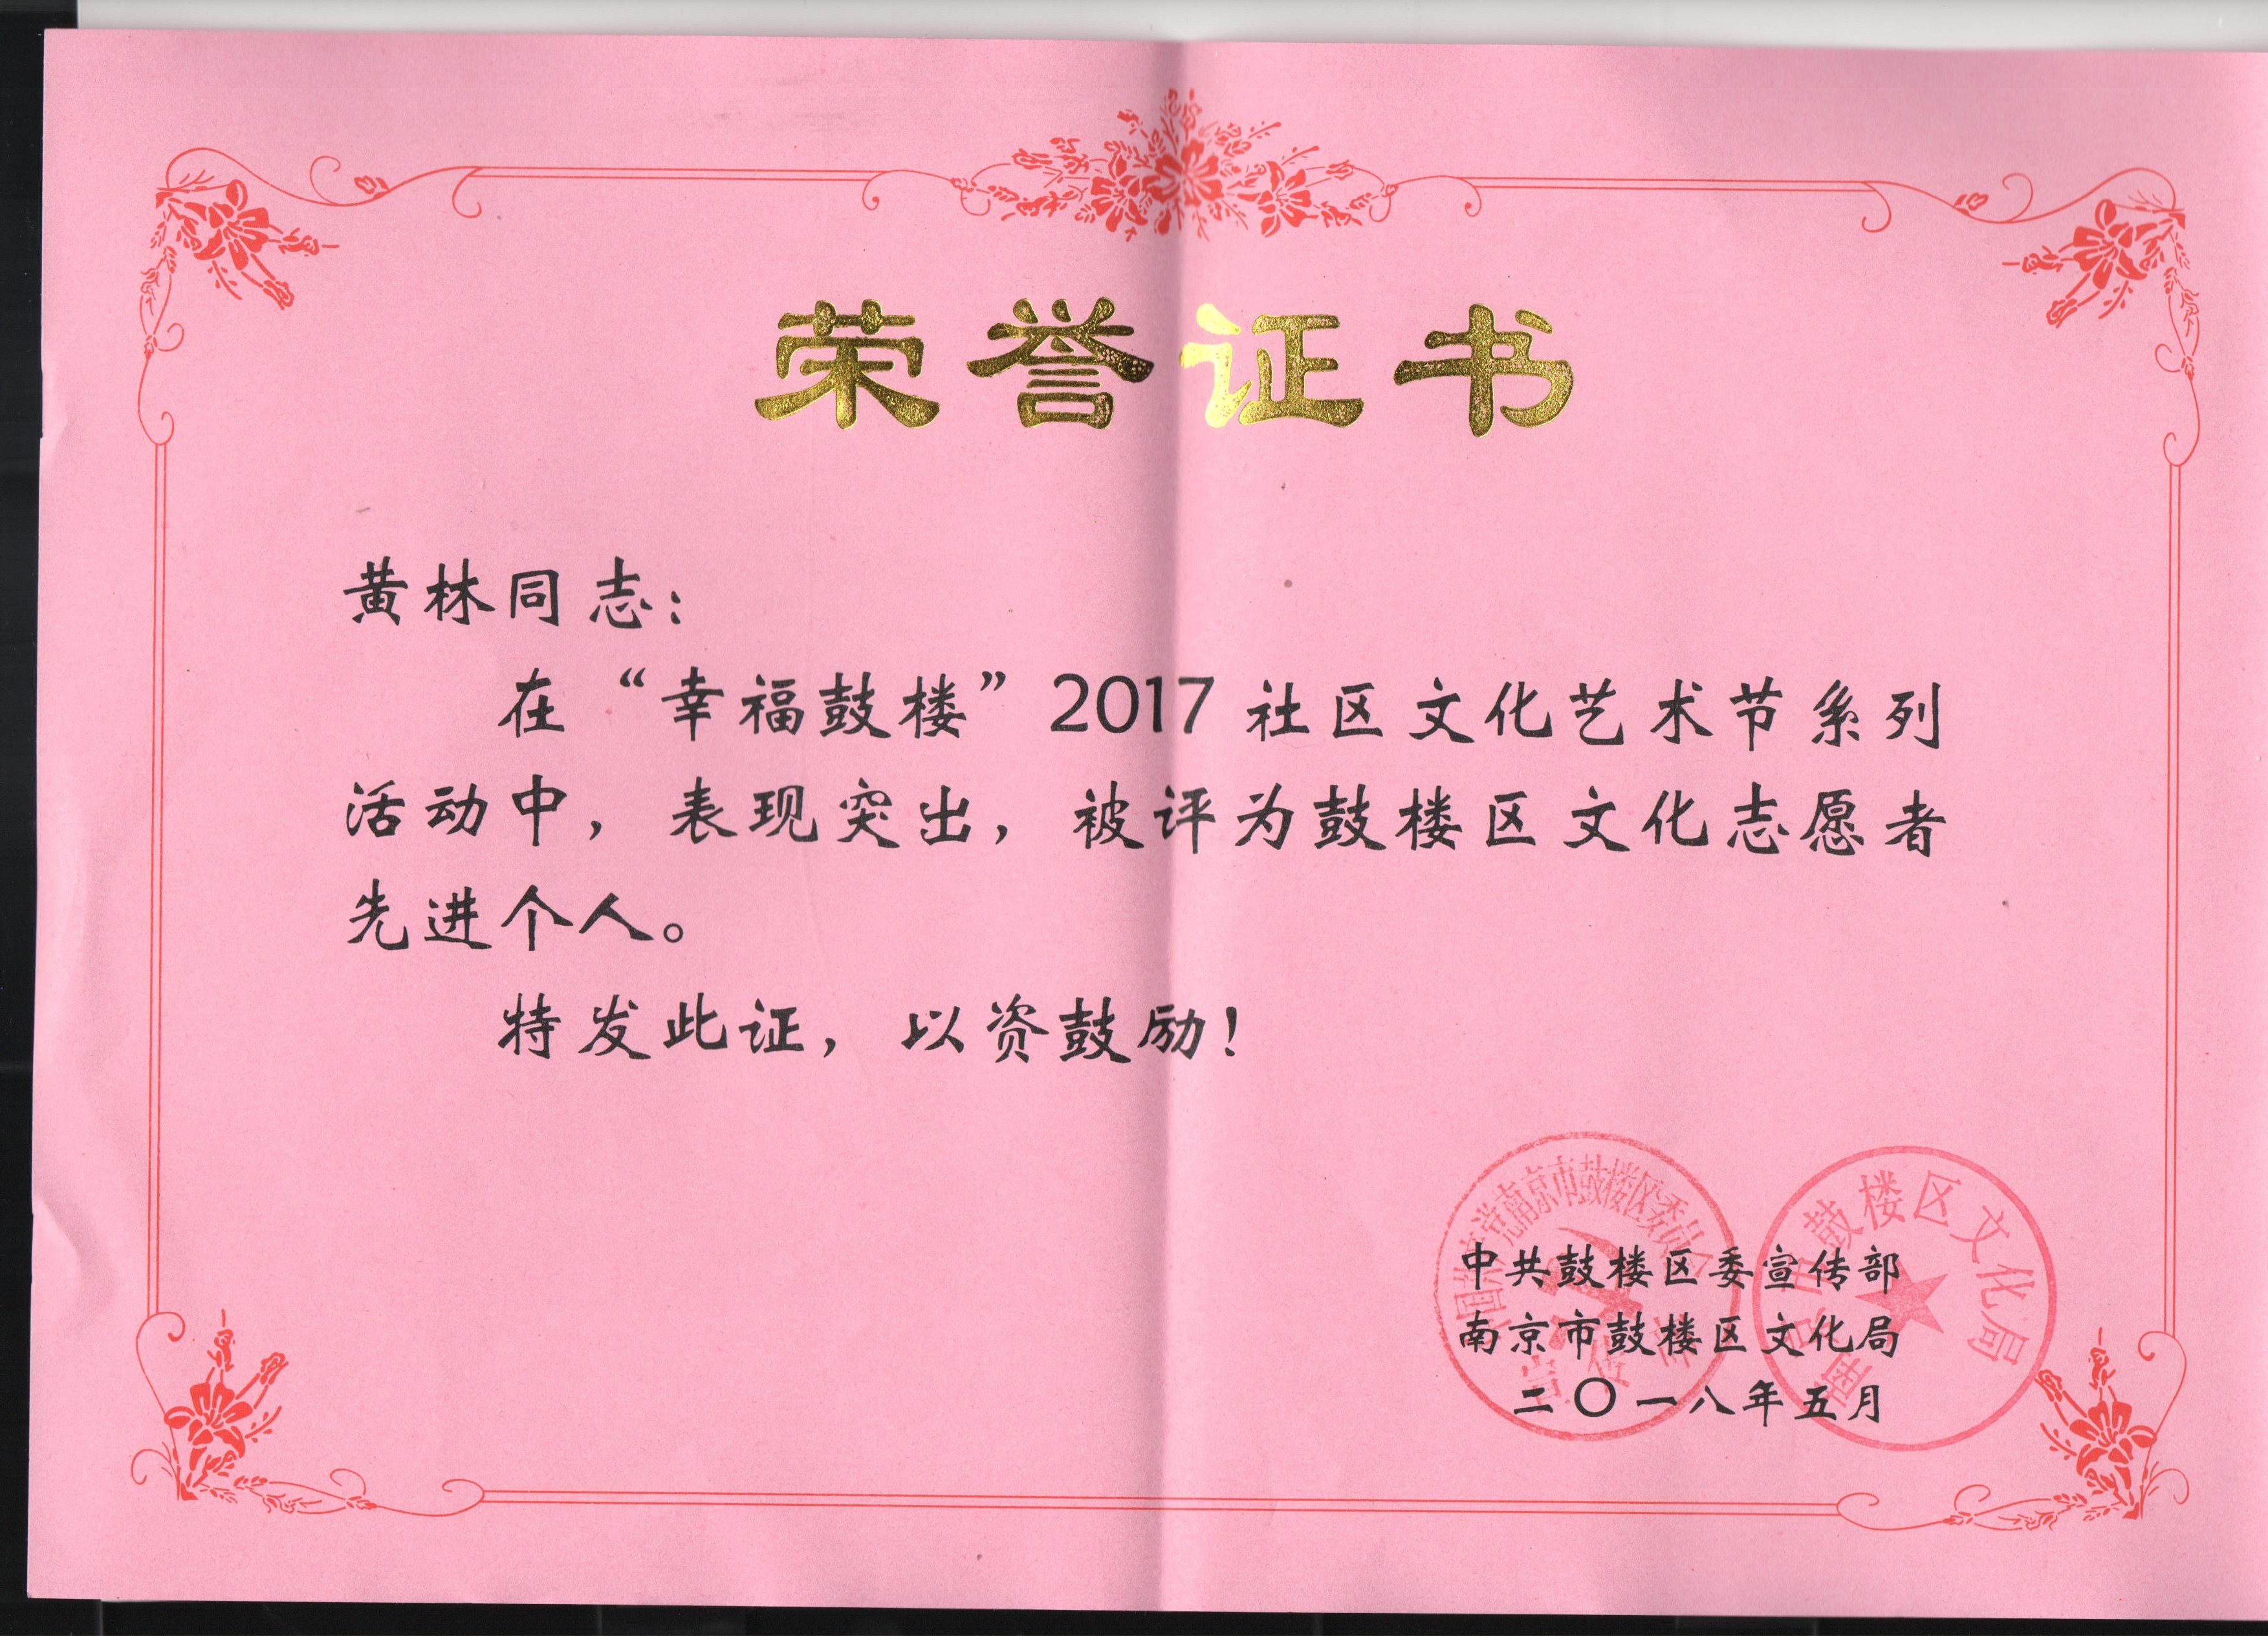 荣誉证书
黄林同志：
在“幸福鼓楼”2017社区文化艺术节系列
活动中，表现突出，被评为鼓楼区文化志愿者
先进个人。
特发此证，以资鼓励！
中共鼓楼区委宣传部
南京市鼓楼区文化局
二〇一八年五月
产党南京市鼓楼区委员会
鼓楼区文化局